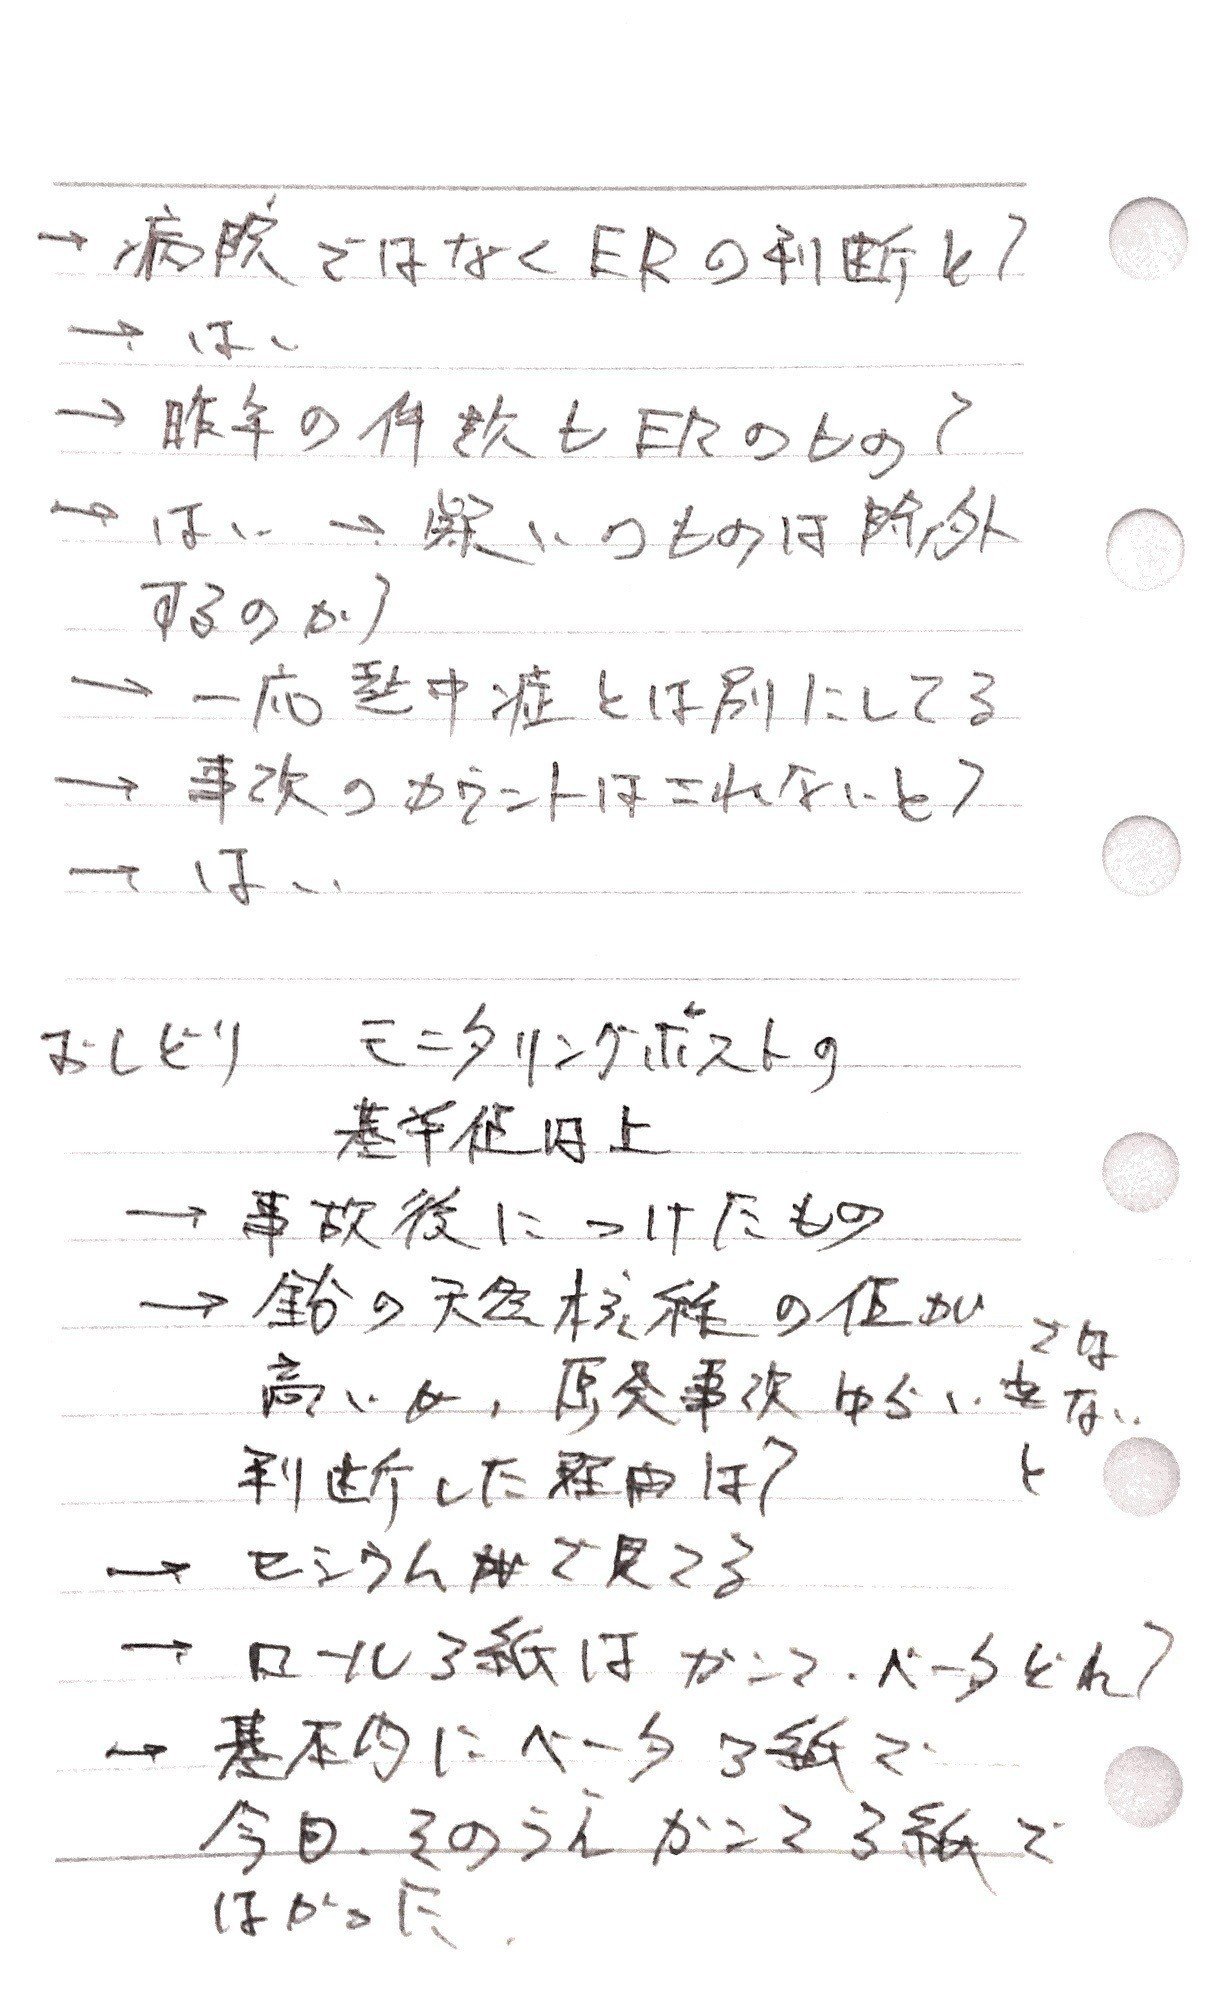 → 病院ではなくERの判断と?
→ はい
→ 昨年の件数もERのもの?
→ はい → 疑いのものは除外
するのか?
→ 一応熱中症とは別にしてる
→ 事故のカウントはされないと?
→ はい
おしどり モニタリングポストの
基準値以上
→ 事故後につけたもの
→ 鉛の天然核種の値が
高いが、原発事故ゆらいではないと
判断した理由は?
→ セシウムで見てる
→ ロールろ紙はガンマ・ベータどれ?
→ 基本的にベータろ紙で
今回、そのうえガンマろ紙で
はかった